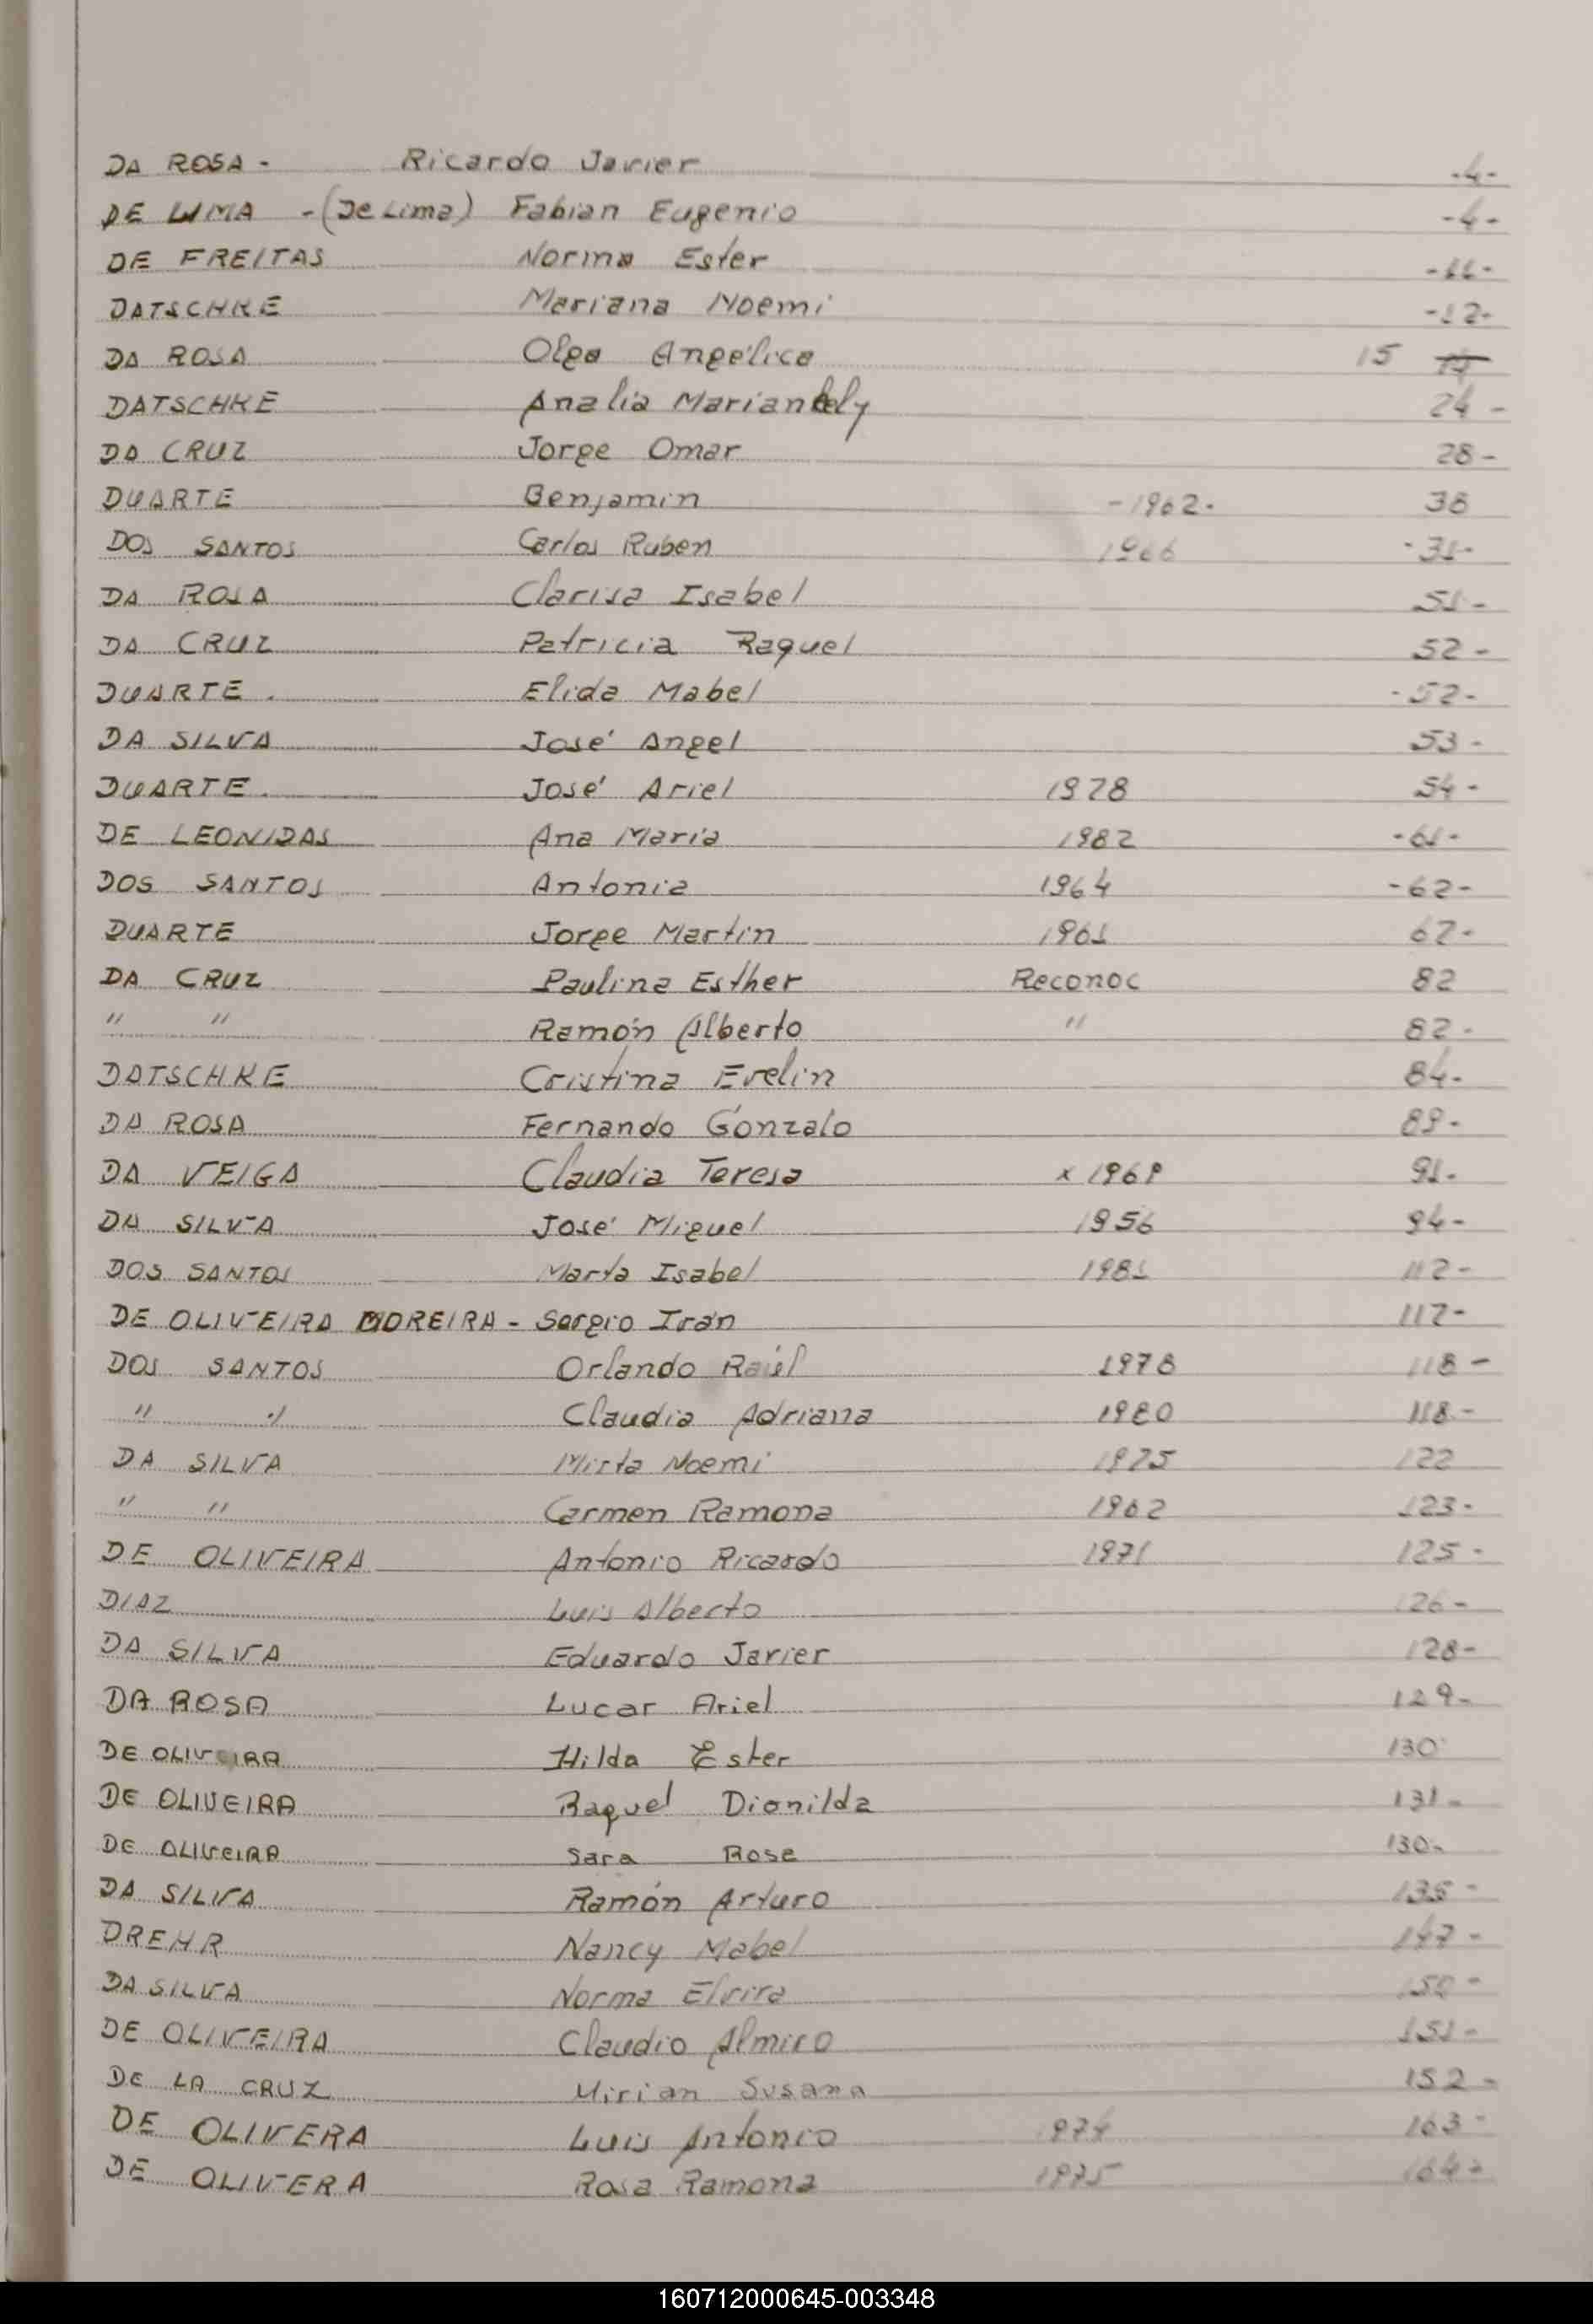 DA ROSA - Ricardo Javier -4-
DE LIMA - (De Lima) Fabian Eugenio -4-
DE FREITAS Norma Ester -11-
DATSCHKE Mariana Noemi -12-
DA ROSA Olga Angélica 15
DATSCHKE Analia Mariankely 24 -
DA CRUZ Jorge Omar 28 -
DUARTE Benjamin - 1962 - 38
DOS SANTOS Carlos Ruben 1966 - 31 -
DA ROSA Clarisa Isabel 51 -
DA CRUZ Patricia Raquel 52 -
DUARTE . Elida Mabel - 52 -
DA SILVA José Angel 53 -
DUARTE . José Ariel 1978 54 -
DE LEONIDAS Ana Maria 1982 - 61 -
DOS SANTOS Antonia 1964 - 62 -
DUARTE Jorge Martin 1961 67 -
DA CRUZ Paulina Esther Reconoc 82
" " Ramón Alberto " 82 -
DATSCHKE Cristina Evelin 84 -
DA ROSA Fernando Gonzalo 89 -
DA VEIGA Claudia Teresa x 1969 91 -
DA SILVA José Miguel 1956 94 -
DOS SANTOS Marta Isabel 1981 112 -
DE OLIVEIRA MOREIRA - Sergio Iván 117 -
DOS SANTOS Orlando Raúl 1978 118 -
" " Claudia Adriana 1980 118 -
DA SILVA Mirta Noemi 1975 122
" " Carmen Ramona 1962 123 -
DE OLIVEIRA Antonio Ricardo 1971 125 -
DIAZ Luis Alberto 126 -
DA SILVA Eduardo Javier 128 -
DA ROSA Lucar Ariel 129 -
DE OLIVEIRA Hilda Ester 130
DE OLIVEIRA Raquel Dionilda 131 -
DE OLIVEIRA Sara Rose 130 -
DA SILVA Ramón Arturo 135 -
DREHR Nancy Mabel 147 -
DA SILVA Norma Elvira 150 -
DE OLIVEIRA Claudio Almiro 151 -
DE LA CRUZ Mirian Susana 152 -
DE OLIVERA Luis Antonio 1974 163 -
DE OLIVERA Rosa Ramona 1975 164 -
160712000645-003348